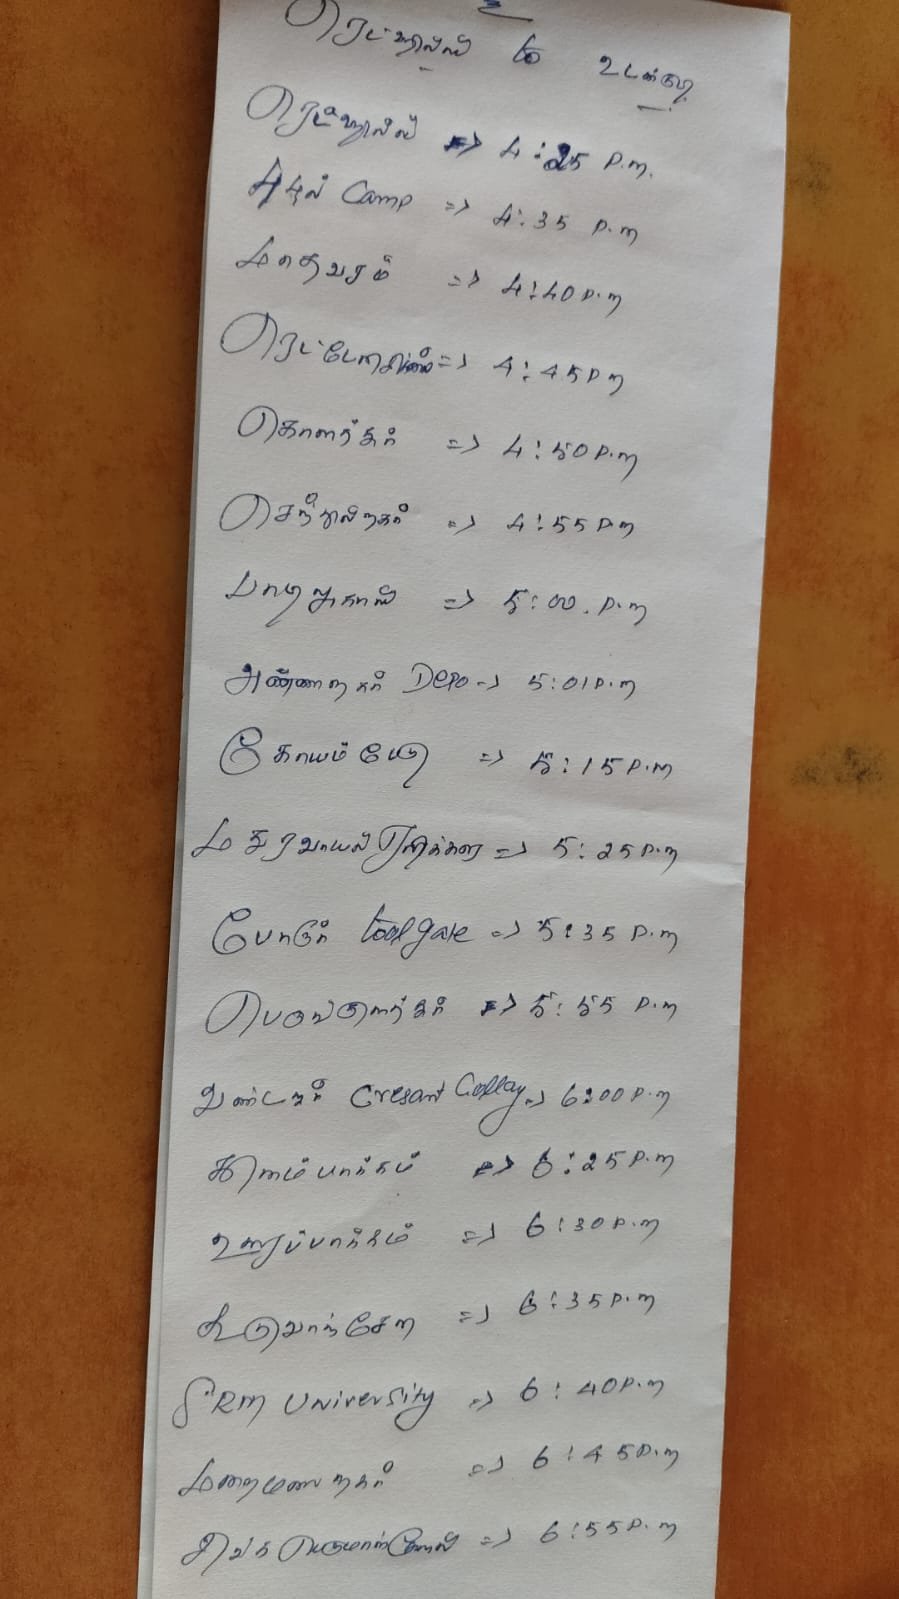 ரெட்ஹில்ஸ் to உடன்குடி
ரெட்ஹில்ஸ் => 4:25 P.m.
புழல் Camp => 4:35 P.m
மாதவரம் => 4:40 P.m
ரெட்டேரி => 4:45 Pm
கொளத்தூர் => 4:50 P.m
செந்தில்நகர் => 4:55 Pm
பாடி லுகாஸ் => 5:00. P.m
அண்ணாநகர் Depo => 5:01 P.m
கோயம்பேடு => 5:15 P.m
மதுரவாயல் ஏரிக்கரை => 5:25 P.m
போரூர் toolgate => 5:35 P.m
பெருங்களத்தூர் => 5:55 P.m
வண்டலூர் Cresant Collay => 6:00 P.m
கிளாம்பாக்கம் => 6:25 P.m
ஊரப்பாக்கம் => 6:30 P.m
கூடுவாஞ்சேரி => 6:35 P.m
SRM University => 6:40 P.m
மறைமலைநகர் => 6:45 P.m
சிங்கபெருமாள்கோவில் => 6:55 P.m